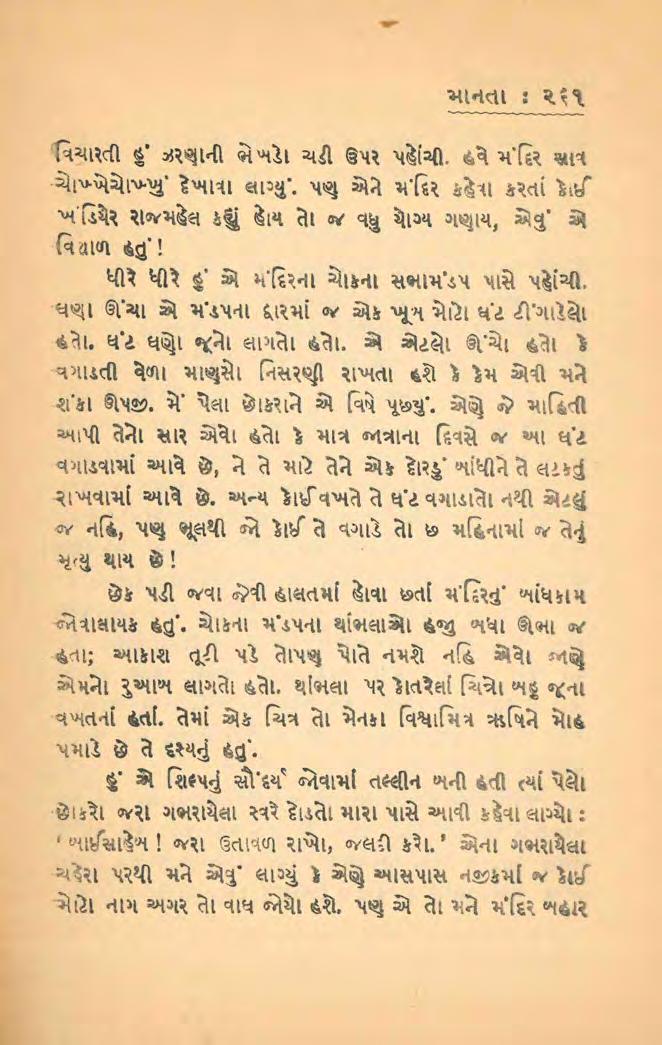 માનતા : ૨૬૧
વિચારતી હું ઝરણાની ભેખડો ચડી ઉપર પહોંચી. હવે મંદિર સાવ
ચોખ્ખેચોખ્ખું દેખાવા લાગ્યું. પણ એને મંદિર કહેવા કરતાં કોઈ
ખંડિયેર રાજમહેલ કહ્યું હોય તો જ વધુ યોગ્ય ગણાય, એવું એ
વિશાળ હતું !
ધીરે ધીરે હું એ મંદિરના ચોકના સભામંડપ પાસે પહોંચી.
ઘણા ઊંચા એ મંડપના દ્વારમાં જ એક ખૂબ મોટો ઘંટ ટીંગાડેલો
હતો. ઘંટ ઘણો જૂનો લાગતો હતો. એ એટલો ઊંચો હતો કે
વગાડતી વેળા માણસો નિસરણી રાખતા હશે કે કેમ એવી મને
શંકા ઊપજી. મેં પેલા છોકરાને એ વિષે પૂછ્યું. એણે જે માહિતી
આપી તેનો સાર એવો હતો કે માત્ર જાત્રાના દિવસે જ આ ઘંટ
વગાડવામાં આવે છે, ને તે માટે તેને એક દોરડું બાંધીને તે લટકતું
રાખવામાં આવે છે. અન્ય કોઈ વખતે તે ઘંટ વગાડાતો નથી એટલું
જ નહિ, પણ ભૂલથી જો કોઈ તે વગાડે તો છ મહિનામાં જ તેનું
મૃત્યુ થાય છે !
છેક પડી જવા જેવી હાલતમાં હોવા છતાં મંદિરનું બાંધકામ
જોવાલાયક હતું. ચોકના મંડપના થાંભલાઓ હજુ બધા ઊભા જ
હતા; આકાશ તૂટી પડે તોપણ પોતે નમશે નહિ એવો જાણે
એમનો રુઆબ લાગતો હતો. થાંભલા પર કોતરેલાં ચિત્રો બહુ જૂના
વખતનાં હતાં. તેમાં એક ચિત્ર તો મેનકા વિશ્વામિત્ર ઋષિને મોહ
પમાડે છે તે દશ્યનું હતું.
હું એ શિલ્પનું સૌંદર્ય જોવામાં તલ્લીન બની હતી ત્યાં પેલો
છોકરો જરા ગભરાયેલા સ્વરે દોડતો મારા પાસે આવી કહેવા લાગ્યો :
‘ બાઈસાહેબ ! જરા ઉતાવળ રાખો, જલદી કરો. ’ એના ગભરાયેલા
ચહેરા પરથી મને એવું લાગ્યું કે એણે આસપાસ નજીકમાં જ કોઈ
મોટો નાગ અગર તો વાઘ જોયો હશે. પણ એ તો મને મંદિર બહાર